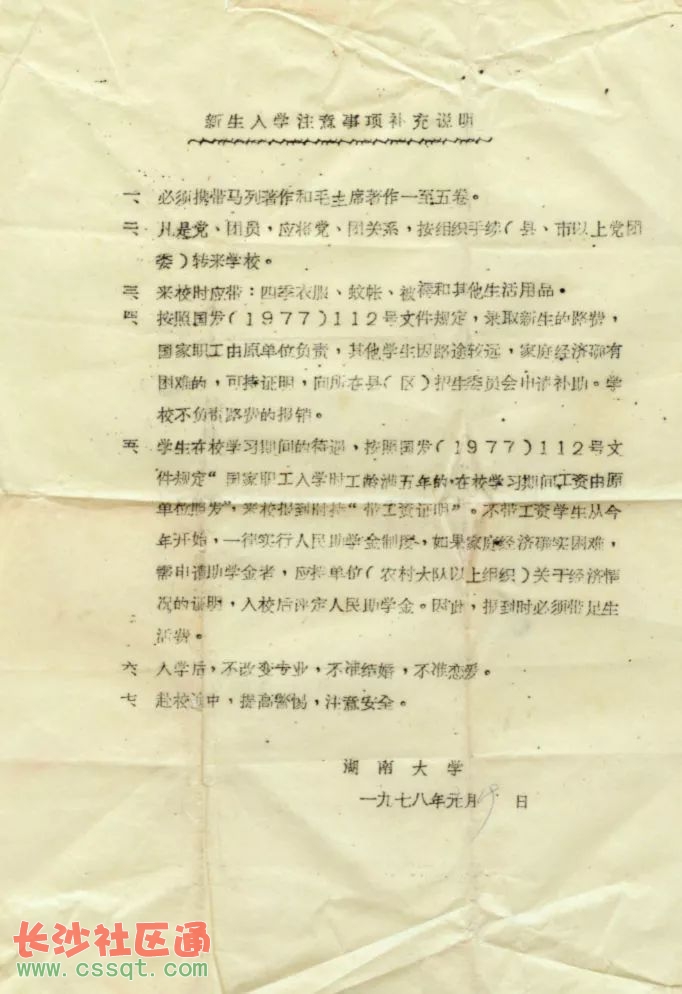 新生入学注意事项补充说明
一、必须携带马列著作和毛主席著作一至五卷。
二、凡是党、团员，应将党、团关系，按组织手续（县、市以上党团
委）转来学校。
三、来校时应带：四季衣服、蚊帐、被褥和其他生活用品。
四、按照国发（1977）112号文件规定，录取新生的路费，
国家职工由原单位负责，其他学生因路途较远，家庭经济确有
困难的，可持证明，向所在县（区）招生委员会申请补助。学
校不负责路费的报销。
五、学生在校学习期间的待遇，按照国发（1977）112号文
件规定“国家职工入学时工龄满五年的，在校学习期间工资由原
单位照发”，来校报到时持“带工资证明”。不带工资学生从今
年开始，一律实行人民助学金制度，如果家庭经济确实困难，
需申请助学金者，应持单位（农村大队以上组织）关于经济情
况的证明，入校后评定人民助学金。因此，报到时必须带足生
活费。
六、入学后，不改变专业，不准结婚，不准恋爱。
七、赴校途中，提高警惕，注意安全。
湖南大学
一九七八年元月 日
长沙社区通
www.cssqt.com